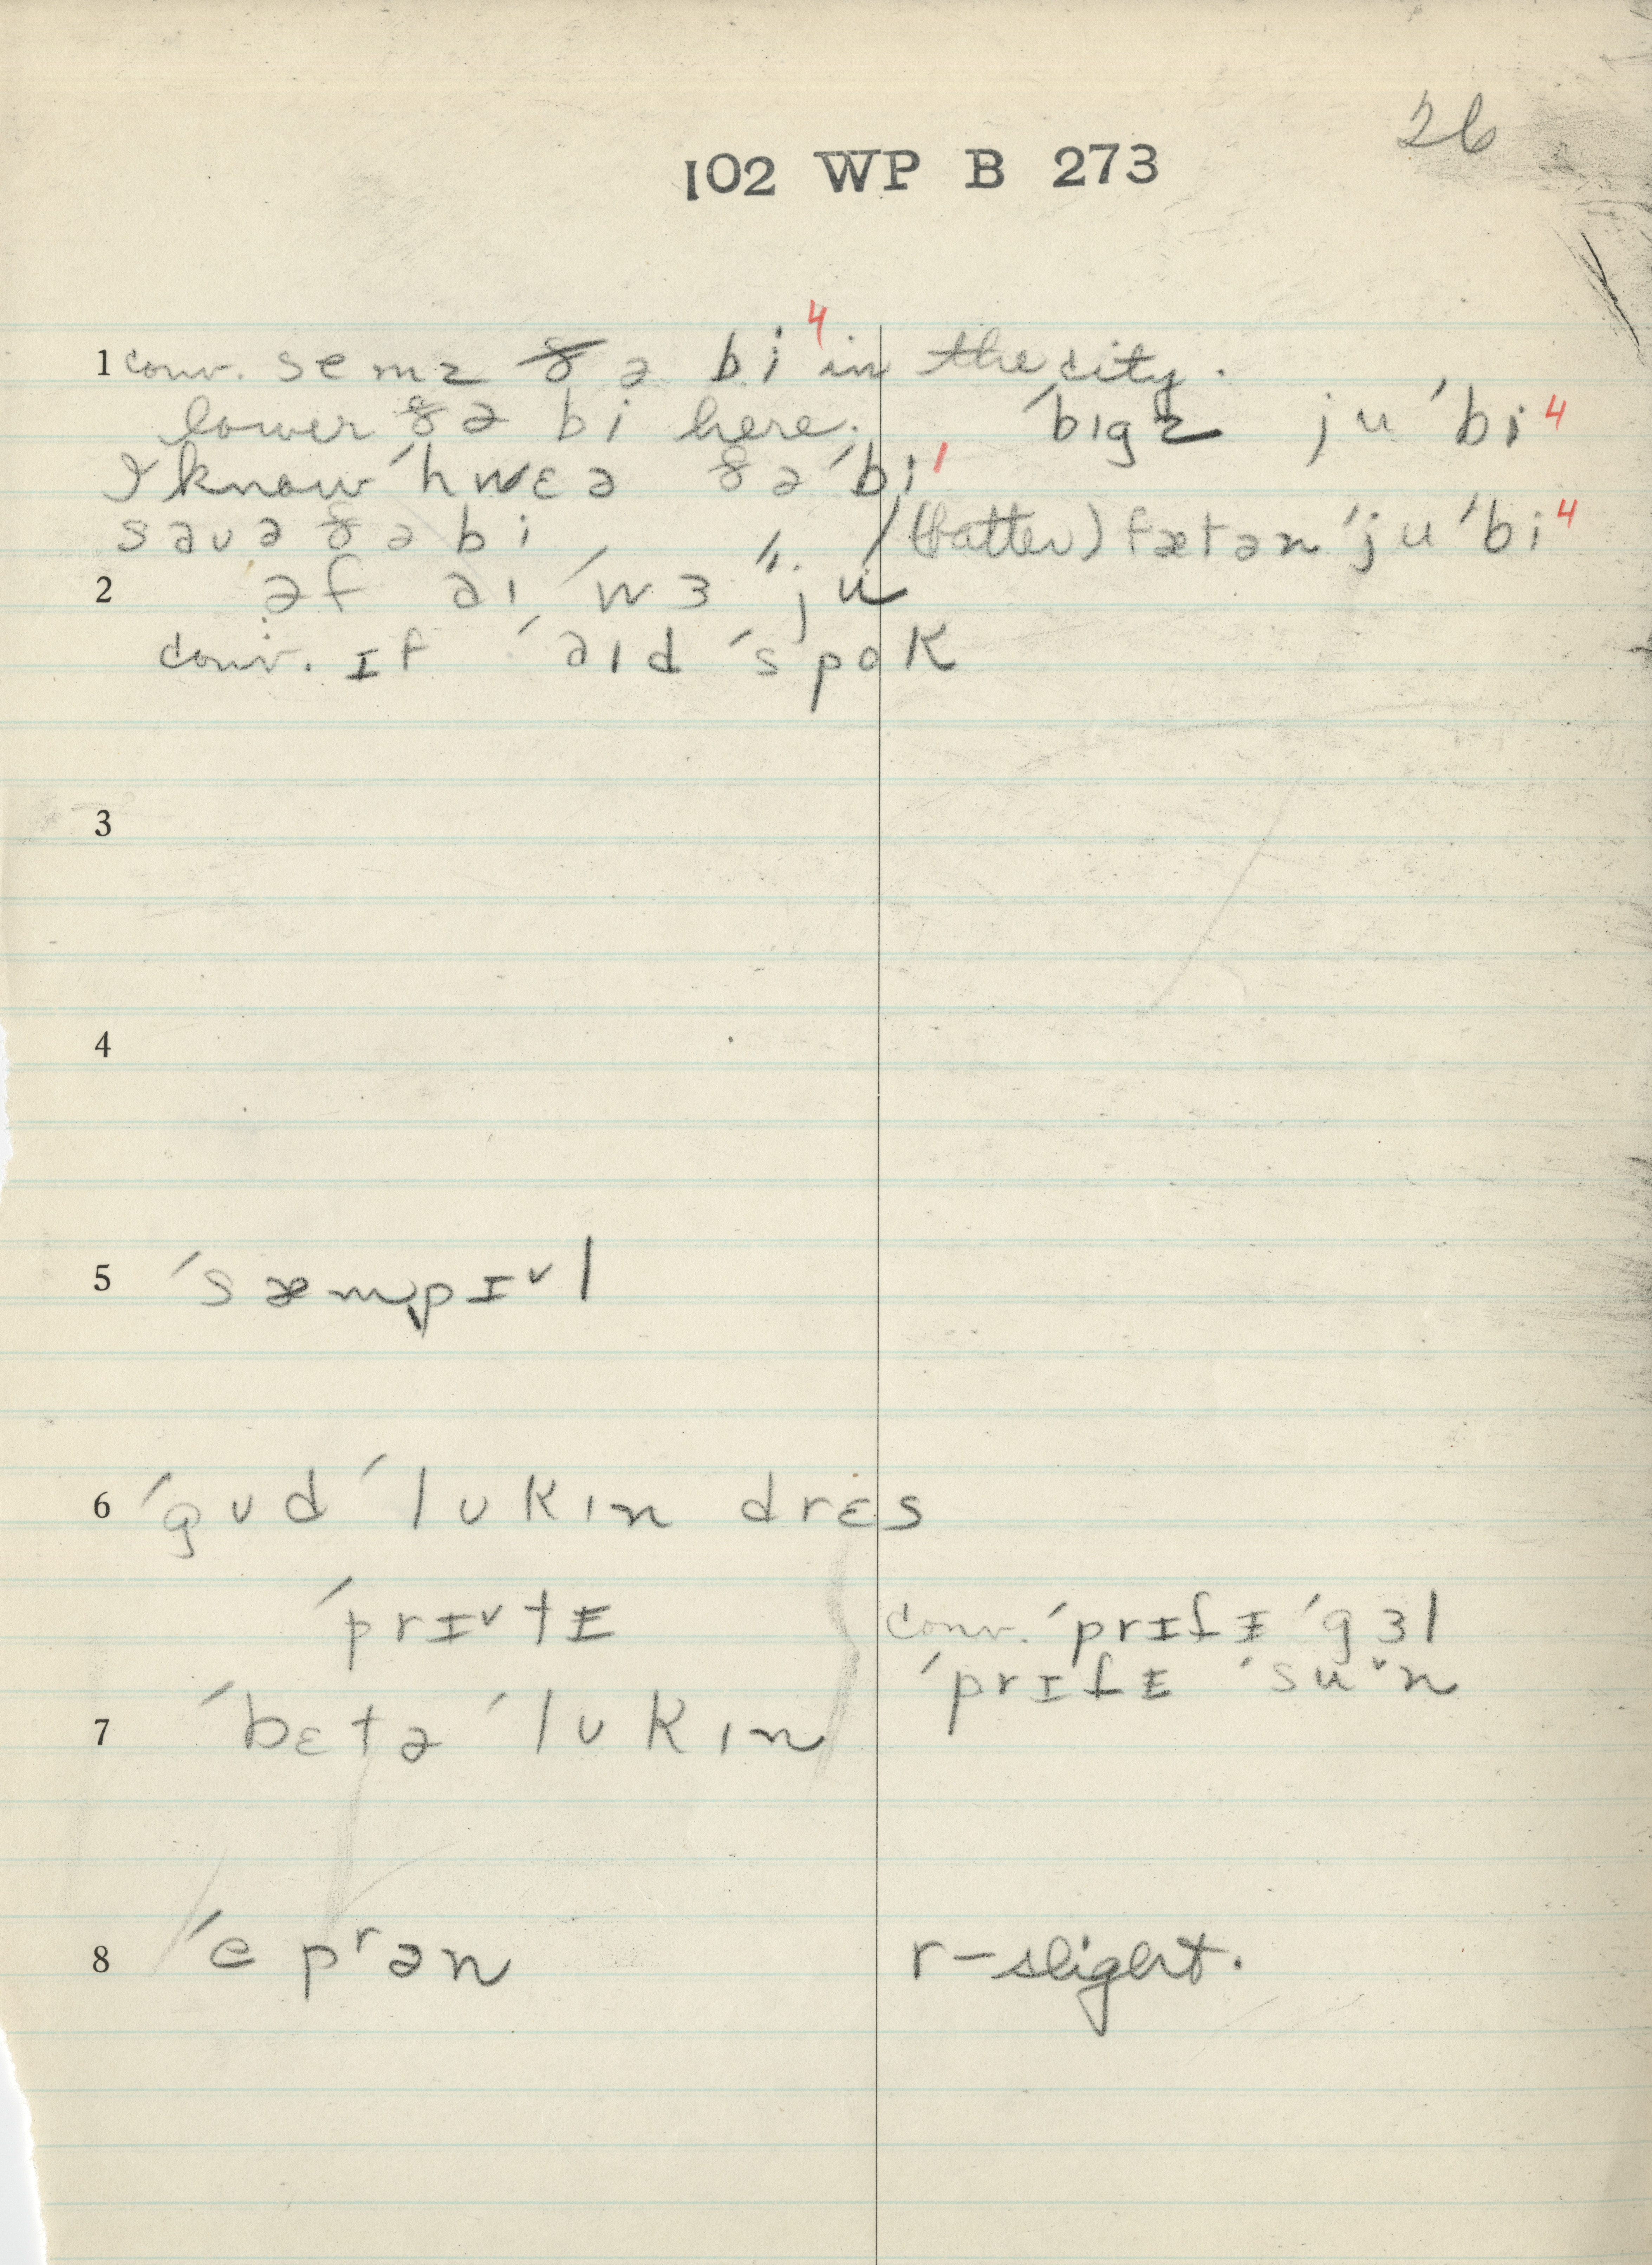 26
102 WP B 273
1 conv. semz ðə bi⁴ in the city.
lower ðə bi here. ˈbɪgz ju ˈbi⁴
I know ˈhwɛə ðə ˈbi¹
sauə ðə bi (batter) fætən ˈju ˈbi⁴
2 əf aɪ ˈwɜ ˈˈju
conv. ɪf ˈaɪd ˈspok
3
4
5 ˈsæmpɪ˅l
6 ˈgʊd ˈlʊkɪn drɛs
ˈprɪ˅tɪ conv. ˈprɪtɪ ˈgɜl
ˈprɪtɪ ˈsu˅n
7 ˈbɛtə ˈlʊkɪn
8 ˈepʳən r-slight.